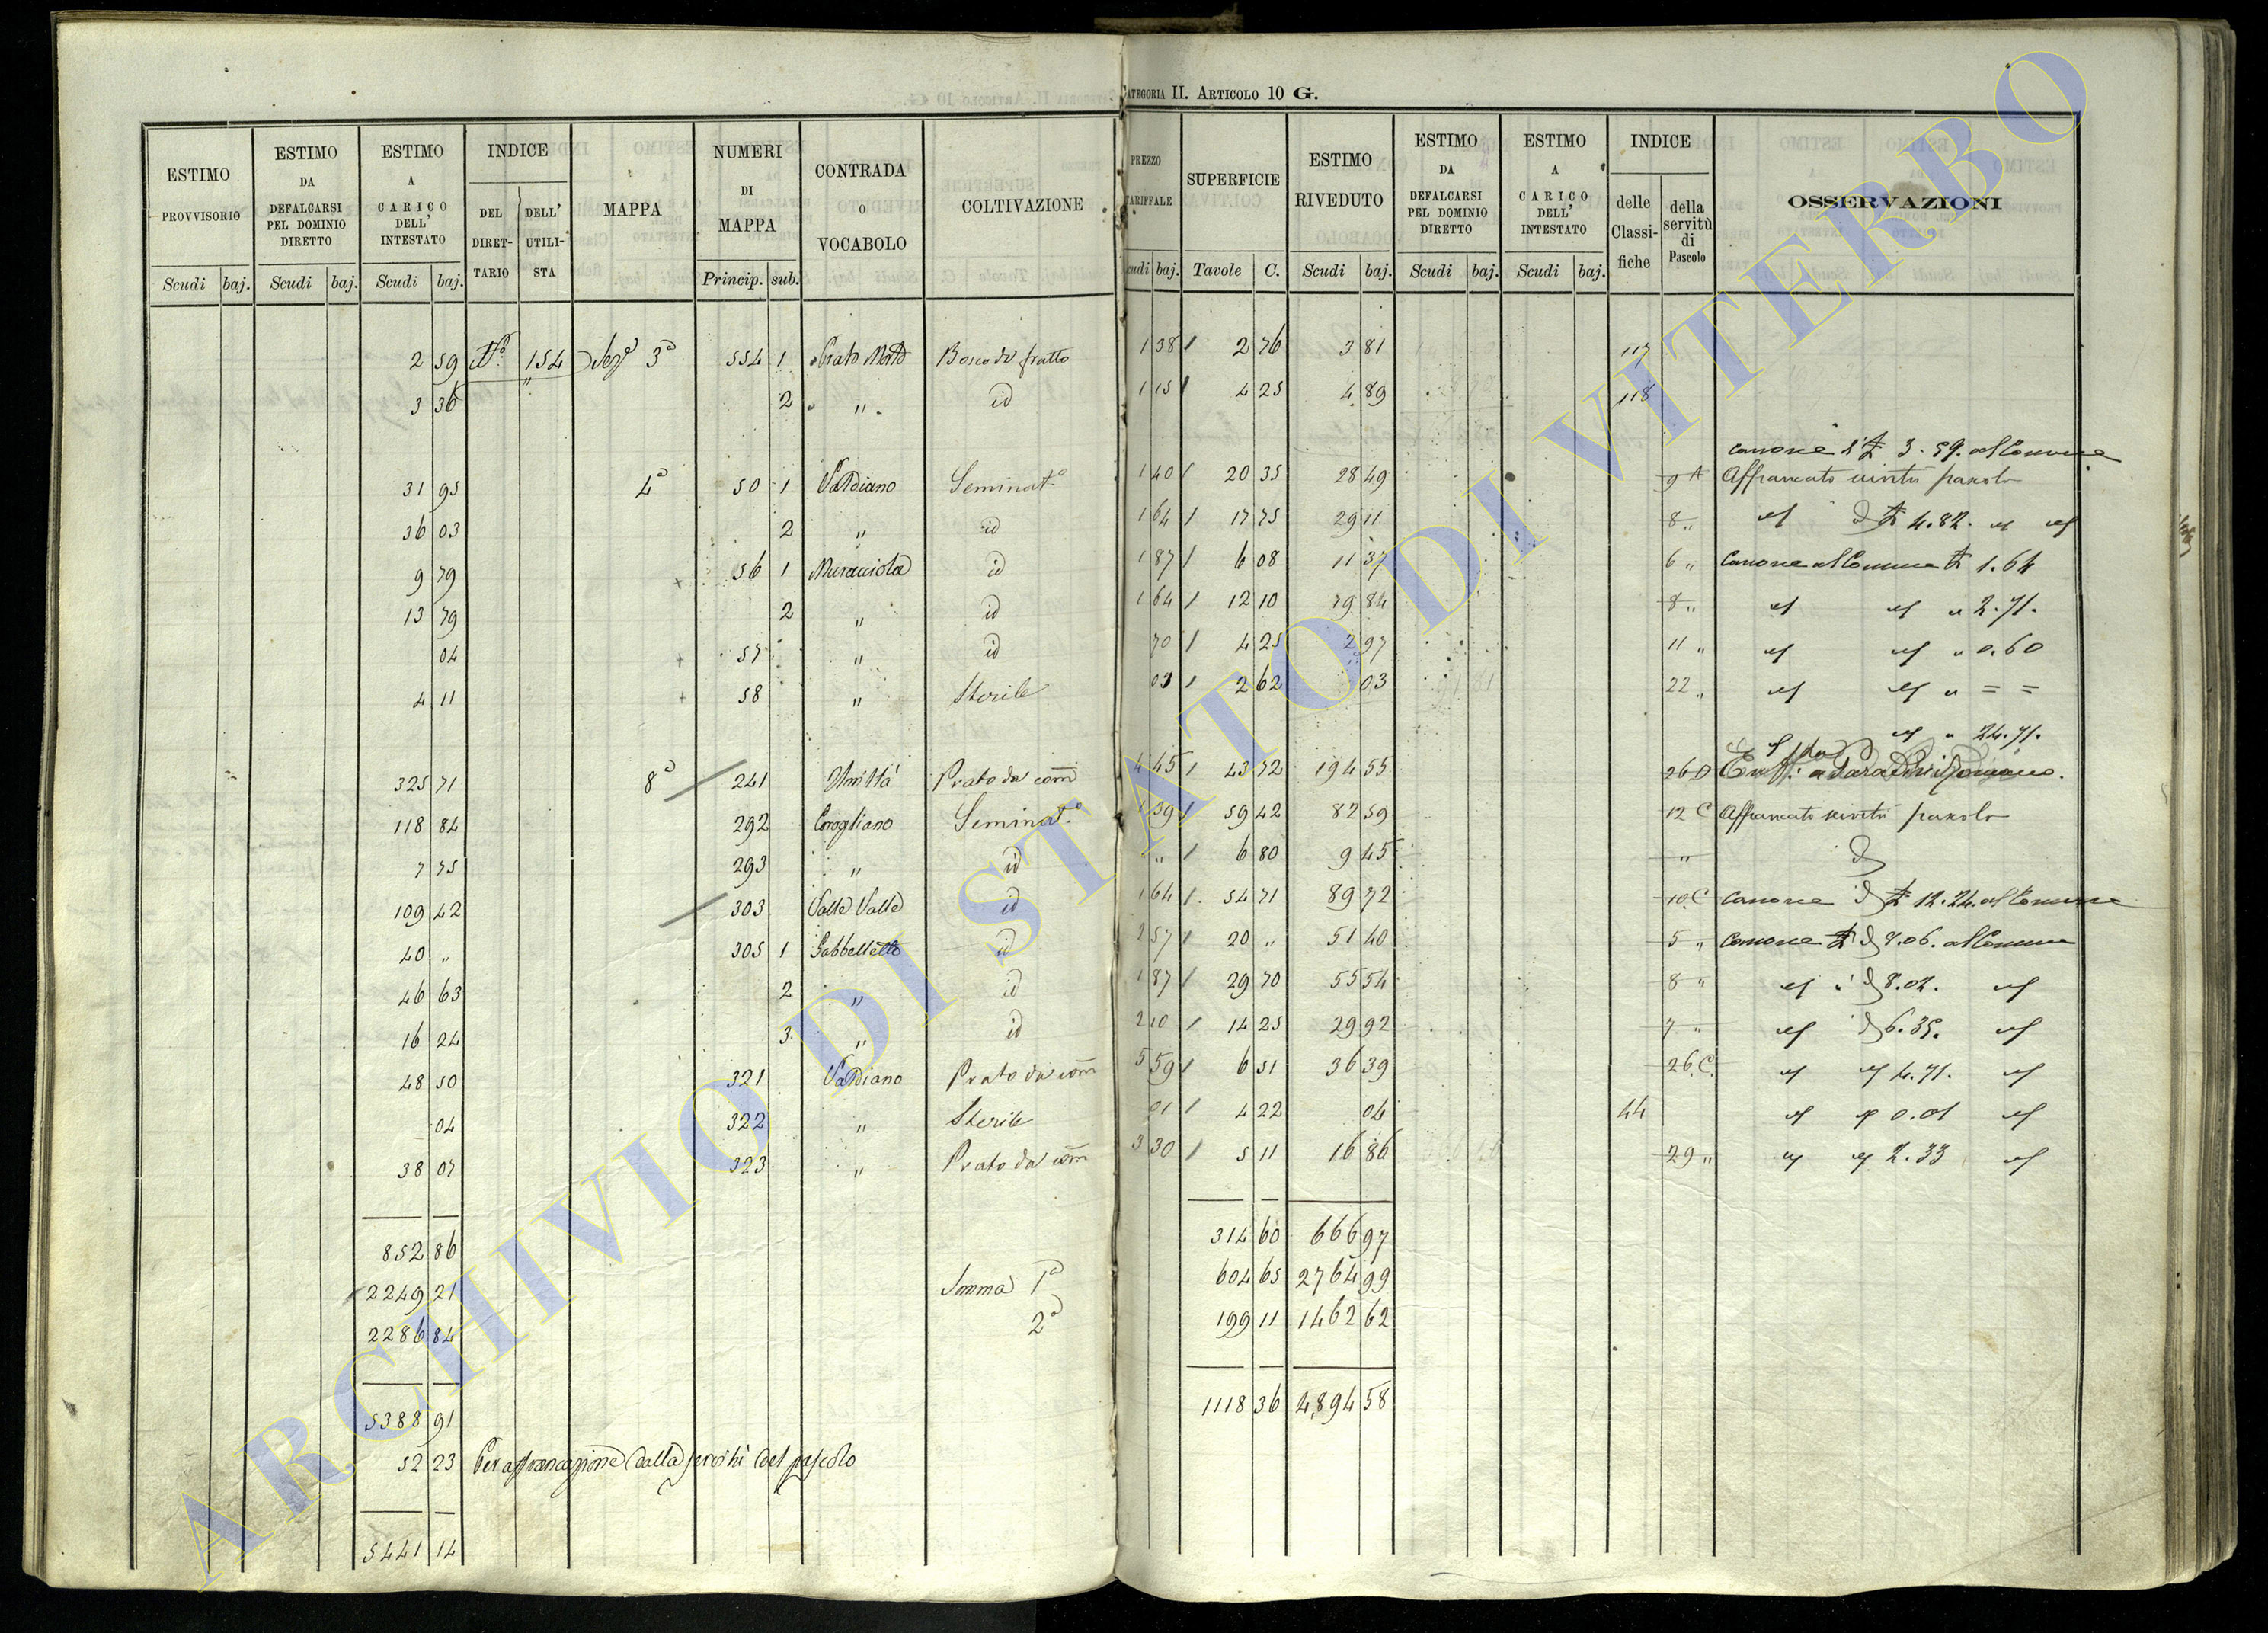 CATEGORIA II. ARTICOLO 10 G.
ESTIMO PROVVISORIO Scudi baj.
ESTIMO DA DEFALCARSI PEL DOMINIO DIRETTO Scudi baj.
ESTIMO A CARICO DELL' INTESTATO Scudi baj.
INDICE
DEL DIRETTARIO
DELL' UTILISTA
MAPPA
NUMERI DI MAPPA Princip. sub.
CONTRADA O VOCABOLO
COLTIVAZIONE
PREZZO TARIFFALE Scudi baj.
SUPERFICIE Tavole C.
ESTIMO RIVEDUTO Scudi baj.
ESTIMO DA DEFALCARSI PEL DOMINIO DIRETTO Scudi baj.
ESTIMO A CARICO DELL' INTESTATO Scudi baj.
INDICE
delle Classifiche
della servitù di Pascolo
OSSERVAZIONI
2 59 154 Sezᵉ 3ᵃ 554 1 Bosco da frutto 1 38 2 76 3 81 117
3 36 " 2 " id 1 15 4 25 4 89 118
canone 3.59. al Comune
31 95 4ᵃ 50 1 Valdiano Seminatº 1 40 20 35 28 49 9 A Affrancato servitù pascolo
36 03 2 " id 1 64 17 75 29 11 8 " 4.82.
9 79 56 1 Muracciola id 1 87 6 08 11 37 6 " Canone al Comune 1.64
13 79 2 " id 1 64 12 10 19 84 8 " " 2.71.
04 57 " id 70 4 25 2 97 11 " " 0.60
4 11 58 " Sterile 01 2 62 03 22 " " = =
" 24.71.
325 71 8ᵃ 241 Prato da com 4 45 43 72 194 55 26 D
118 84 292 Corogliano Seminatº 1 39 59 42 82 59 12 C Affrancato servitù pascolo
7 75 293 " id " 6 80 9 45 "
109 42 303 Valle Valle id 1 64 54 71 89 72 10 C canone 12.24. al Comune
40 " 305 1 Gabbelletto id 2 57 20 " 51 40 5 " canone 7.06. al Comune
46 63 2 " id 1 87 29 70 55 54 8 " 8.02.
16 24 3 " id 2 10 14 25 29 92 7 " 6.35.
48 50 321 Valdiano Prato da com 5 59 6 51 36 39 26 C. 4.71.
04 322 " Sterile 01 4 22 04 44 0.01
38 07 323 " Prato da com 3 30 5 11 16 86 29 " 2.33
852 86 314 60 666 97
2249 21 Somma 1ᵃ 604 65 2764 99
2286 84 2ᵃ 199 11 1462 62
5388 91 1118 36 4894 58
52 23 Per affrancazione dalla servitù del pascolo
5441 14
ARCHIVIO DI STATO DI VITERBO